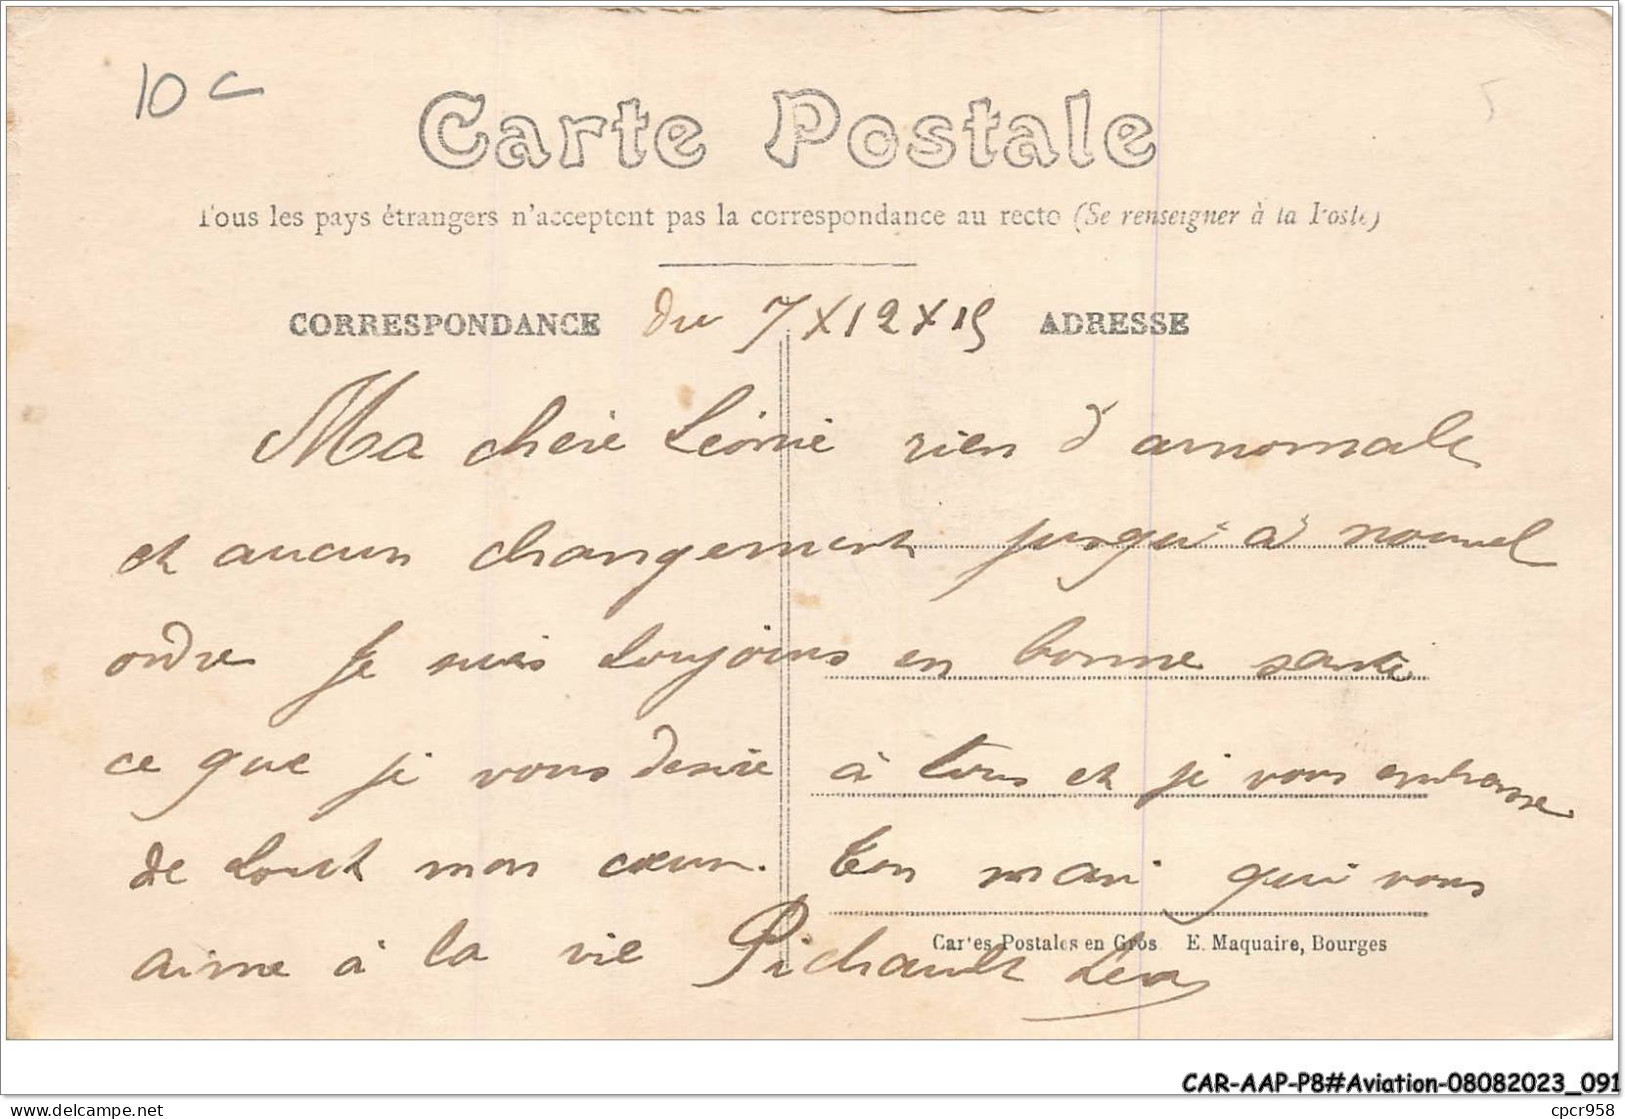 10 c
5
Carte Postale
Tous les pays étrangers n'acceptent pas la correspondance au recto (Se renseigner à la Poste)
CORRESPONDANCE du 7 X 12 X 15 ADRESSE
Ma chère Léonie rien d'anomale
et aucun changement jusqu'à nouvel
ordre Je suis toujours en bonne santé
ce que je vous desire à tous et je vous embrasse
de tout mon cœur. Ton mari qui vous
aime à la vie Pichault Léon
Cartes Postales en Gros E. Maquaire, Bourges
CAR-AAP-P8#Aviation-08082023_091
delcampe.net
cpcr958